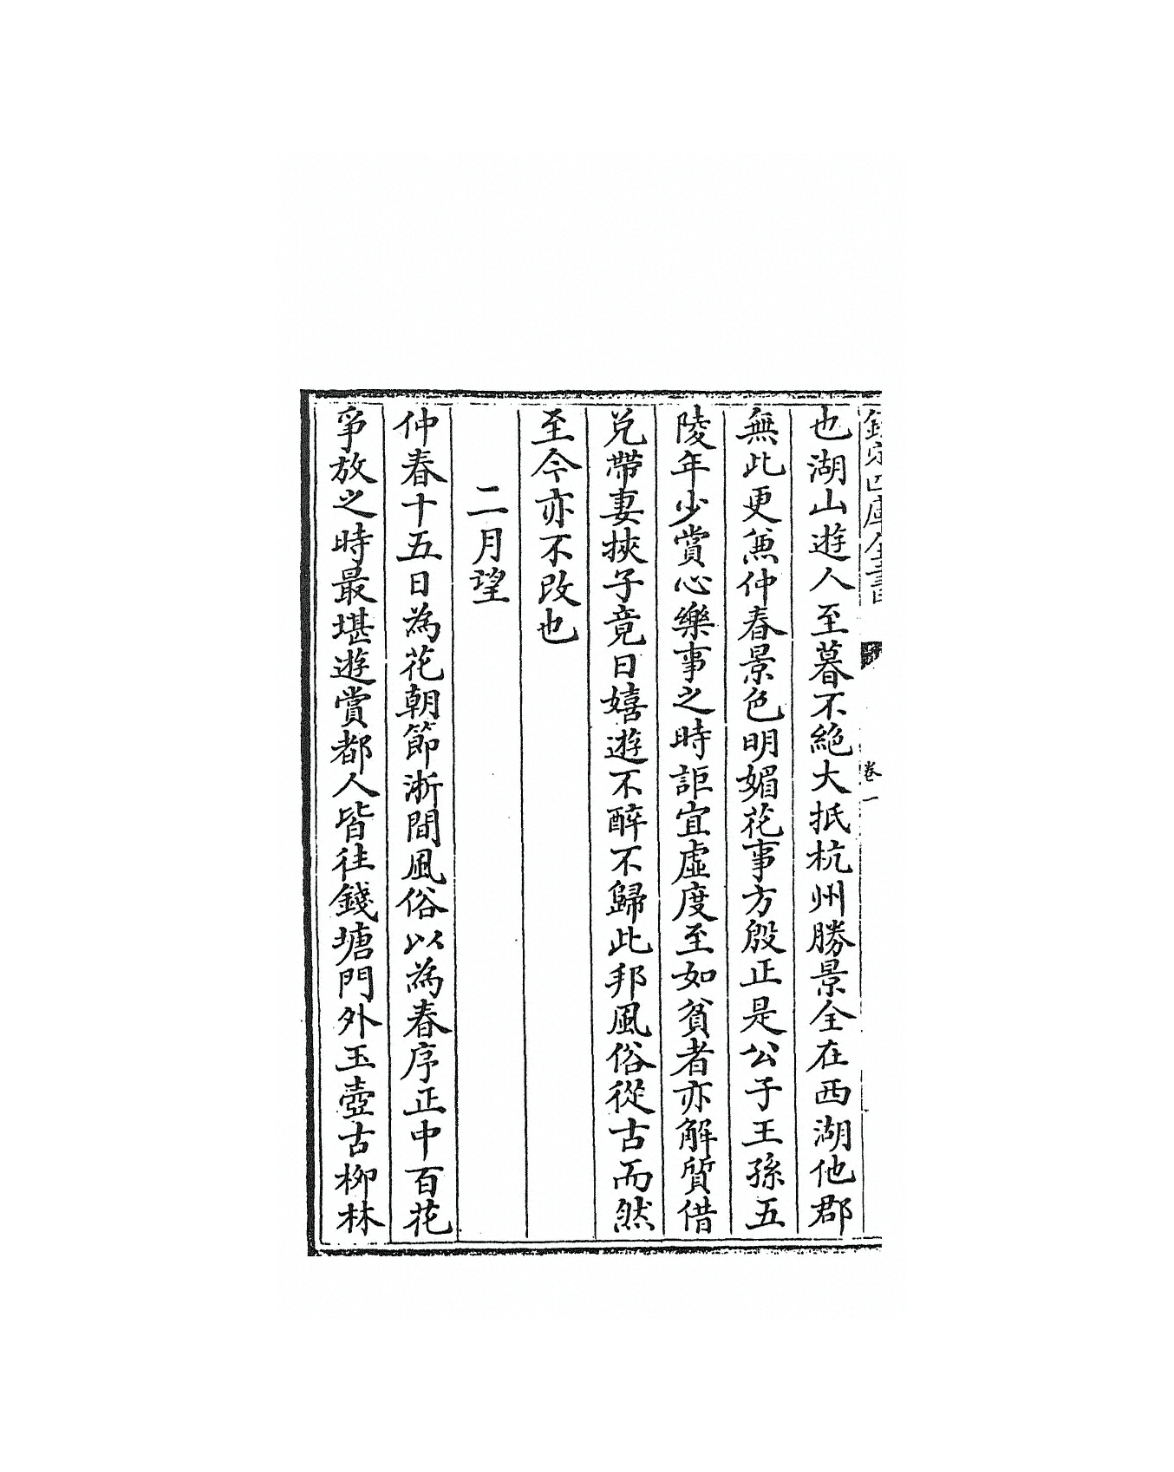 欽定四庫全書
卷一
也湖山遊人至暮不絶大抵杭州勝景全在西湖他郡
無此更兼仲春景色明媚花事方殷正是公子王孫五
陵年少賞心樂事之時詎宜虛度至如貧者亦解質借
兑帶妻挾子竟日嬉遊不醉不歸此邦風俗從古而然
至今亦不改也
二月望
仲春十五日為花朝節浙間風俗以為春序正中百花
爭放之時最堪遊賞都人皆往錢塘門外玉壺古栁林